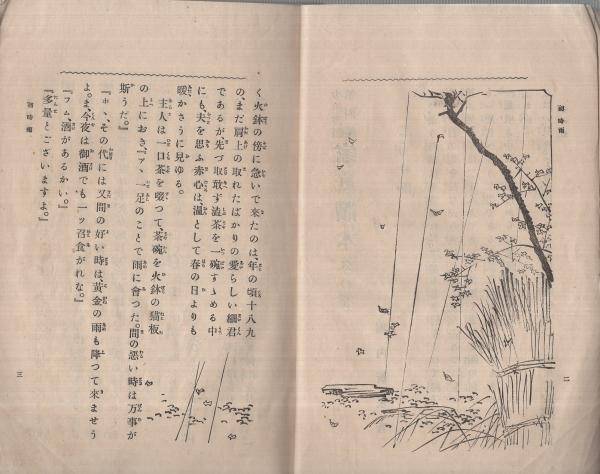 初時雨
二
く火鉢の傍に急いで来たのは、年の頃十八九
の、まだ肩上の取れたばかりの愛らしい細君
であるが、先づ取敢ず澁茶を一碗すゝめる中
にも、夫を思ふ赤心は、温として春の日よりも
暖かさうに見ゆる。
主人は一口茶を啜つて、茶碗を火鉢の猫板
の上におき、『アヽ一足のことで雨に會つた。間の悪い時は万事が
斯うだ。』
『ホヽ、その代には又間の好い時は、黄金の雨も降つて来ませう
よ。ま、今夜は御酒でも一ッ召食がれな。』
『フム、酒があるかい。』
『多量とございますよ。』
初時雨
三